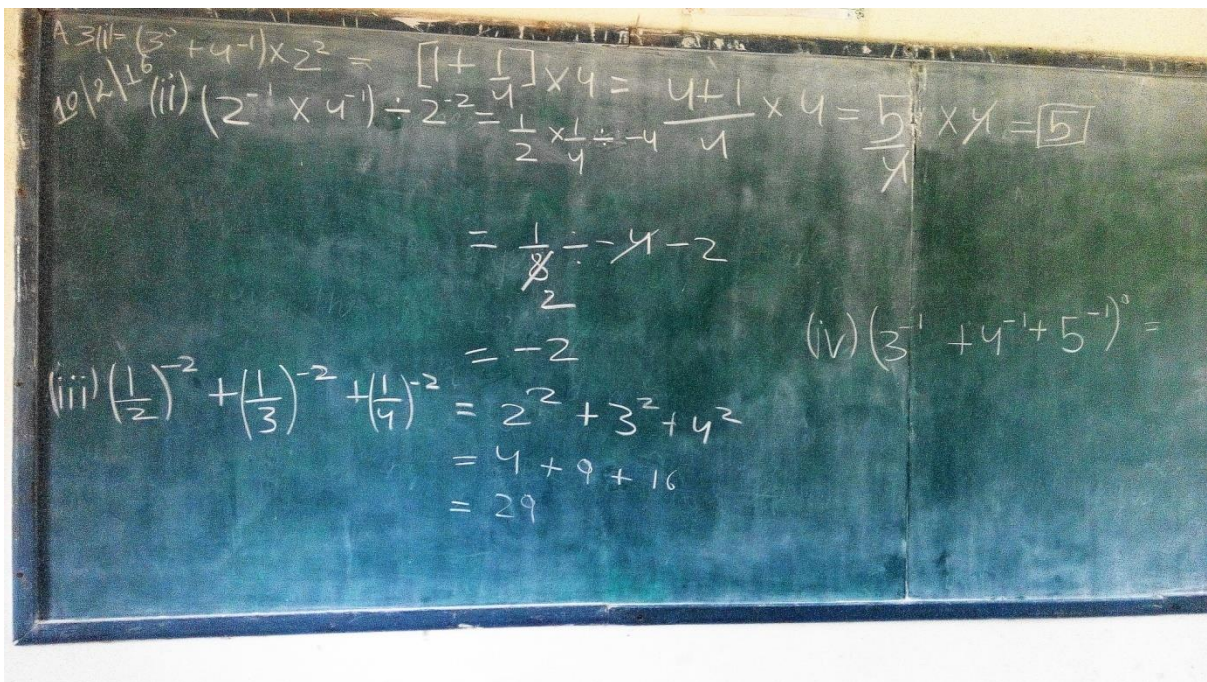 A 3(i)= (3⁰ + 4⁻¹)×2² = [1 + 1/4]×4 = 4+1/4 × 4 = 5/4 × 4 = 5
10|2|16
(ii) (2⁻¹ × 4⁻¹) ÷ 2⁻² = 1/2 × 1/4 ÷ -4
= 1/8 ÷ -4 -2
2
= -2
(iii) (1/2)⁻² + (1/3)⁻² + (1/4)⁻² = 2² + 3² + 4²
= 4 + 9 + 16
= 29
(iv) (3⁻¹ + 4⁻¹ + 5⁻¹)⁰ =